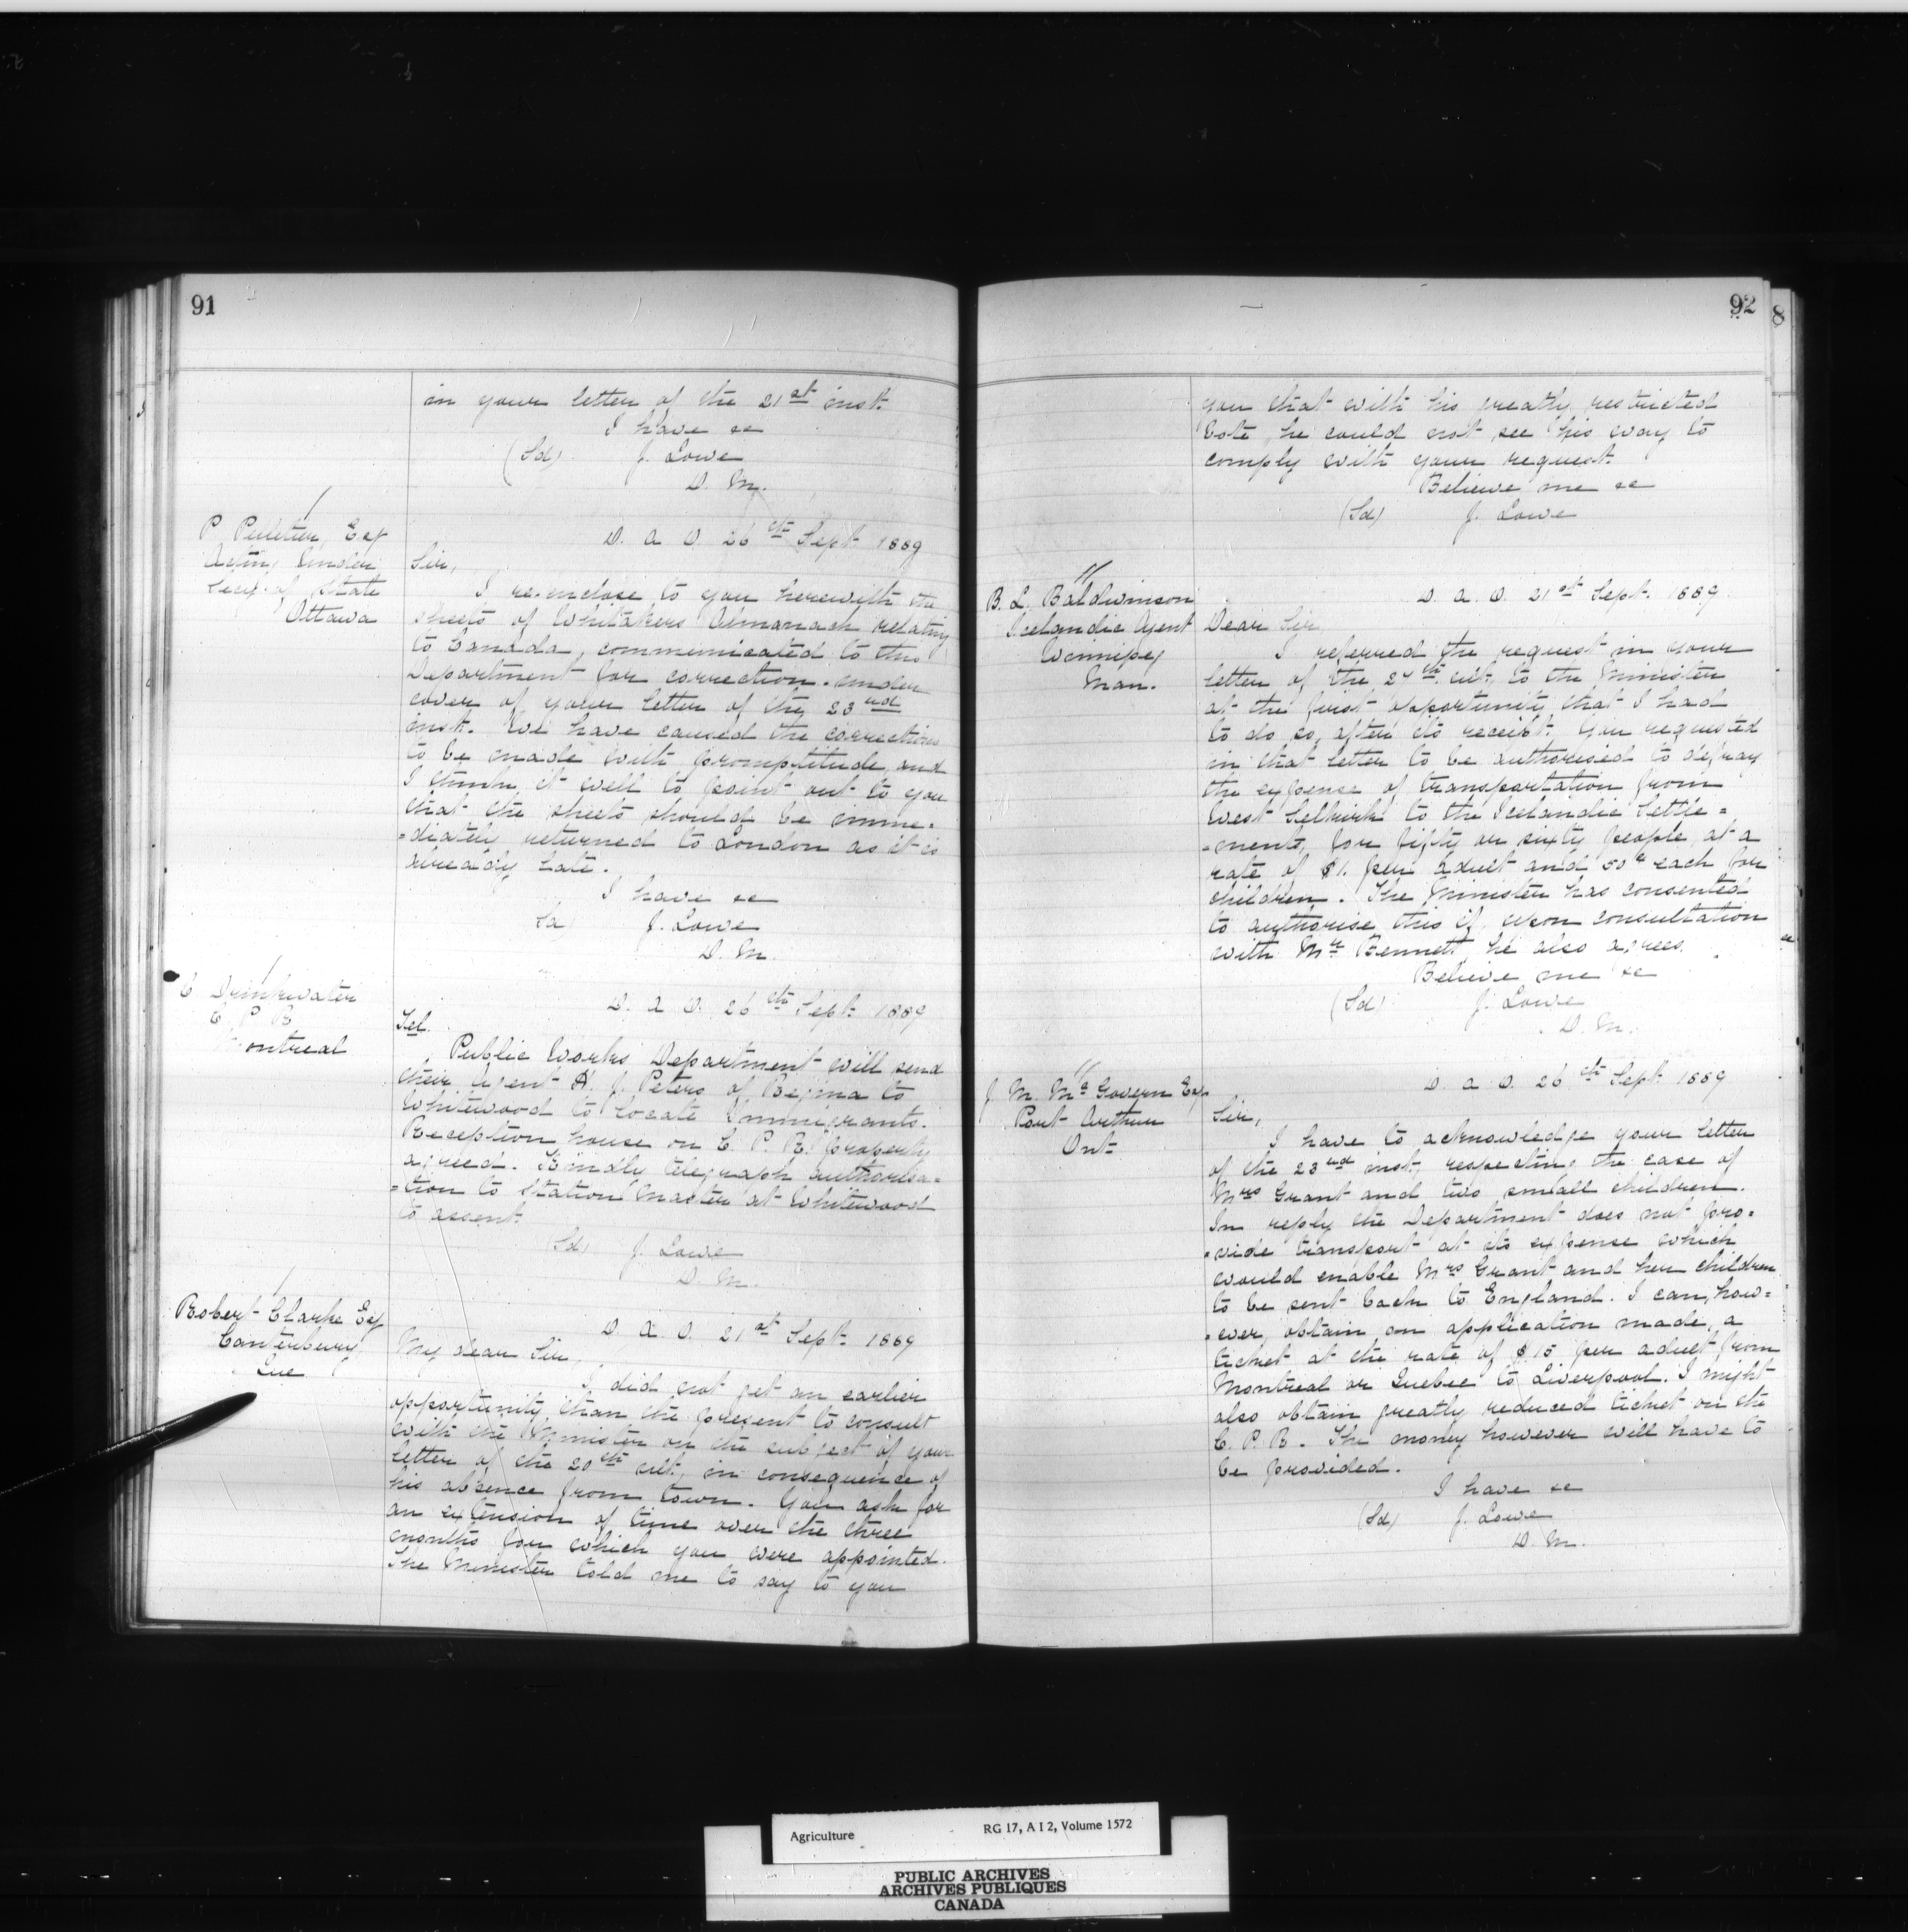 91
in your letter of the 21st inst.
I have &c
(Sd) J. Lowe
D. M.
P Pelletier, Esq
Acting Under
Secy of State
Ottawa
D. A. O. 26th Sept 1889
Sir,
I re-inclose to you herewith the
sheets of Whitakers Almanach relating
to Canada, communicated to this
Department for correction under
cover of your letter of the 23rd
inst. We have caused the corrections
to be made with promptitude, and
I think it well to point out to you
that the sheets should be imme-
=diately returned to London as it is
already late.
I have &c
Sd J. Lowe
D. M.
C Drinkwater
C P R
Montreal
D. A. O. 26th Sept 1889
Tel.
Public Works Department will send
their Agent H. J. Peters of Regina to
Whitewood to locate Immigrants.
Reception house on C. P. R. property
agreed. Kindly telegraph authorisa=
=tion to Station Master at Whitewood
to assent.
(Sd) J. Lowe
D. M.
Robert Clarke Esq
Canterbury
Que
D. A. O. 21st Sept. 1889
My dear Sir,
I did not get an earlier
opportunity than the present to consult
with the Minister on the subject of your
letter of the 20th ult, in consequence of
his absence from town. You ask for
an extension of time over the three
months for which you were appointed.
The Minister told me to say to you
92
8
you that with his greatly restricted
Vote he could not see his way to
comply with your request.
Believe me &c
(Sd) J. Lowe
B. L. Baldwinson
Icelandic Agent
Winnipeg
Man.
D. A. O. 21st Sept. 1889
Dear Sir
I referred the request in your
letter of the 24th ult, to the Minister
at the first opportunity that I had
to do so, after its receipt. You requested
in that letter to be authorised to defray
the expense of transportation from
West Selkirk to the Icelandic Settle=
=ments, for fifty or sixty people, at a
rate of $1. per adult and 50c each for
children. The Minister has consented
to authorise this if, upon consultation
with Mr Bennett, he also agrees.
Believe me &c
(Sd) J. Lowe
D. M.
J. M. McGovern Esq
Port Arthur
Ont
D. A. O. 26th Sept 1889
Sir,
I have to acknowledge your letter
of the 23rd inst, respecting the case of
Mrs Grant and two small children.
In reply the Department does not pro=
=vide transport at its expense which
would enable Mrs Grant and her children
to be sent back to England. I can, how=
=ever, obtain, on application made, a
ticket at the rate of $.15 per adult from
Montreal or Quebec to Liverpool. I might
also obtain greatly reduced ticket on the
C. P. R. The money however will have to
be provided.
I have &c
(Sd) J. Lowe
D. M.
Agriculture RG 17, A I 2, Volume 1572
PUBLIC ARCHIVES
ARCHIVES PUBLIQUES
CANADA